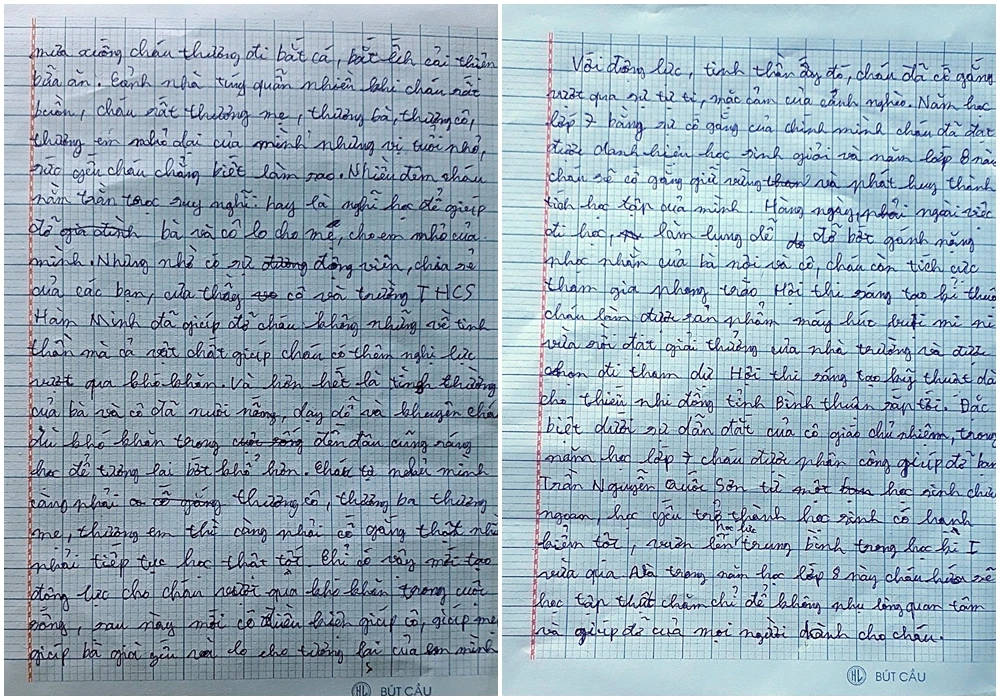 mưa xuống cháu thường đi bắt cá, bắt ếch cải thiện
bữa ăn. Cảnh nhà túng quẫn nhiều khi cháu rất
buồn, cháu rất thương mẹ, thương bà, thương cô,
thương em nhỏ dại của mình nhưng vì tuổi nhỏ,
sức yếu cháu chẳng biết làm sao. Nhiều đêm cháu
nằm trằn trọc suy nghĩ hay là nghỉ học để giúp
đỡ gia đình bà và cô lo cho mẹ, cho em nhỏ của
mình. Nhưng nhờ có sự động viên, chia sẻ
của các bạn, của thầy cô và trường THCS
Hàm Minh đã giúp đỡ cháu không những về tinh
thần mà cả vật chất giúp cháu có thêm nghị lực
vượt qua khó khăn. Và hơn hết là tình thương
của bà và cô đã nuôi nấng, dạy dỗ và khuyên cháu
dù khó khăn trong cuộc sống đến đâu cũng ráng
học để tương lai bớt khổ hơn. Cháu tự nhủ mình
càng phải cố gắng thương cô, thương bà thương
mẹ, thương em thì càng phải cố gắng thật nhiều
phải tiếp tục học thật tốt. Chỉ có vậy mới tạo
động lực cho cháu vượt qua khó khăn trong cuộc
sống, sau này mới có điều kiện giúp cô, giúp mẹ
giúp bà già yếu và lo cho tương lai của em mình
HL BÚT CẦU
Với động lực, tinh thần ấy đó, cháu đã cố gắng
vượt qua sự tự ti, mặc cảm của cảnh nghèo. Năm học
lớp 7 bằng sự cố gắng của chính mình cháu đã đạt
được danh hiệu học sinh giỏi và năm lớp 8 này
cháu sẽ cố gắng giữ vững và phát huy thành
tích học tập của mình. Hàng ngày, phải ngoài việc
đi học, làm lụng để đỡ bớt gánh nặng
nhọc nhằn của bà nội và cô, cháu còn tích cực
tham gia phong trào Hội thi sáng tạo kĩ thuật
cháu làm được sản phẩm máy hút bụi mi ni
vừa rồi đạt giải thưởng của nhà trường và được
chọn đi tham dự Hội thi sáng tạo kỹ thuật dành
cho thiếu nhi đồng tỉnh Bình Thuận sắp tới. Đặc
biệt dưới sự dẫn dắt của cô giáo chủ nhiệm, trong
năm học lớp 7 cháu được phân công giúp đỡ bạn
Trần Nguyễn Quốc Sơn từ một học sinh chưa
ngoan, học yếu trở thành học sinh có hạnh
kiểm tốt, vươn lên học lực trung bình trong học kì I
vừa qua. Và trong năm học lớp 8 này cháu hứa sẽ
học tập thật chăm chỉ để không phụ lòng quan tâm
và giúp đỡ của mọi người dành cho cháu.
HL BÚT CẦU